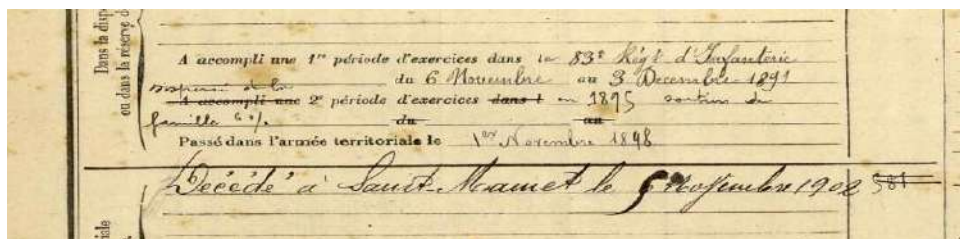 Dans la dispo
ou dans la réserve de
A accompli une 1re période d'exercices dans le 83e Régt d'Infanterie
du 6 Novembre au 3 Décembre 1891
dispensé de la
A accompli une 2e période d'exercices dans l en 1895 soutien de
famille 6 %
du au
Passé dans l'armée territoriale le 1er Novembre 1898
Décédé à Saint-Mamet le 5 Novembre 1902 581
iale